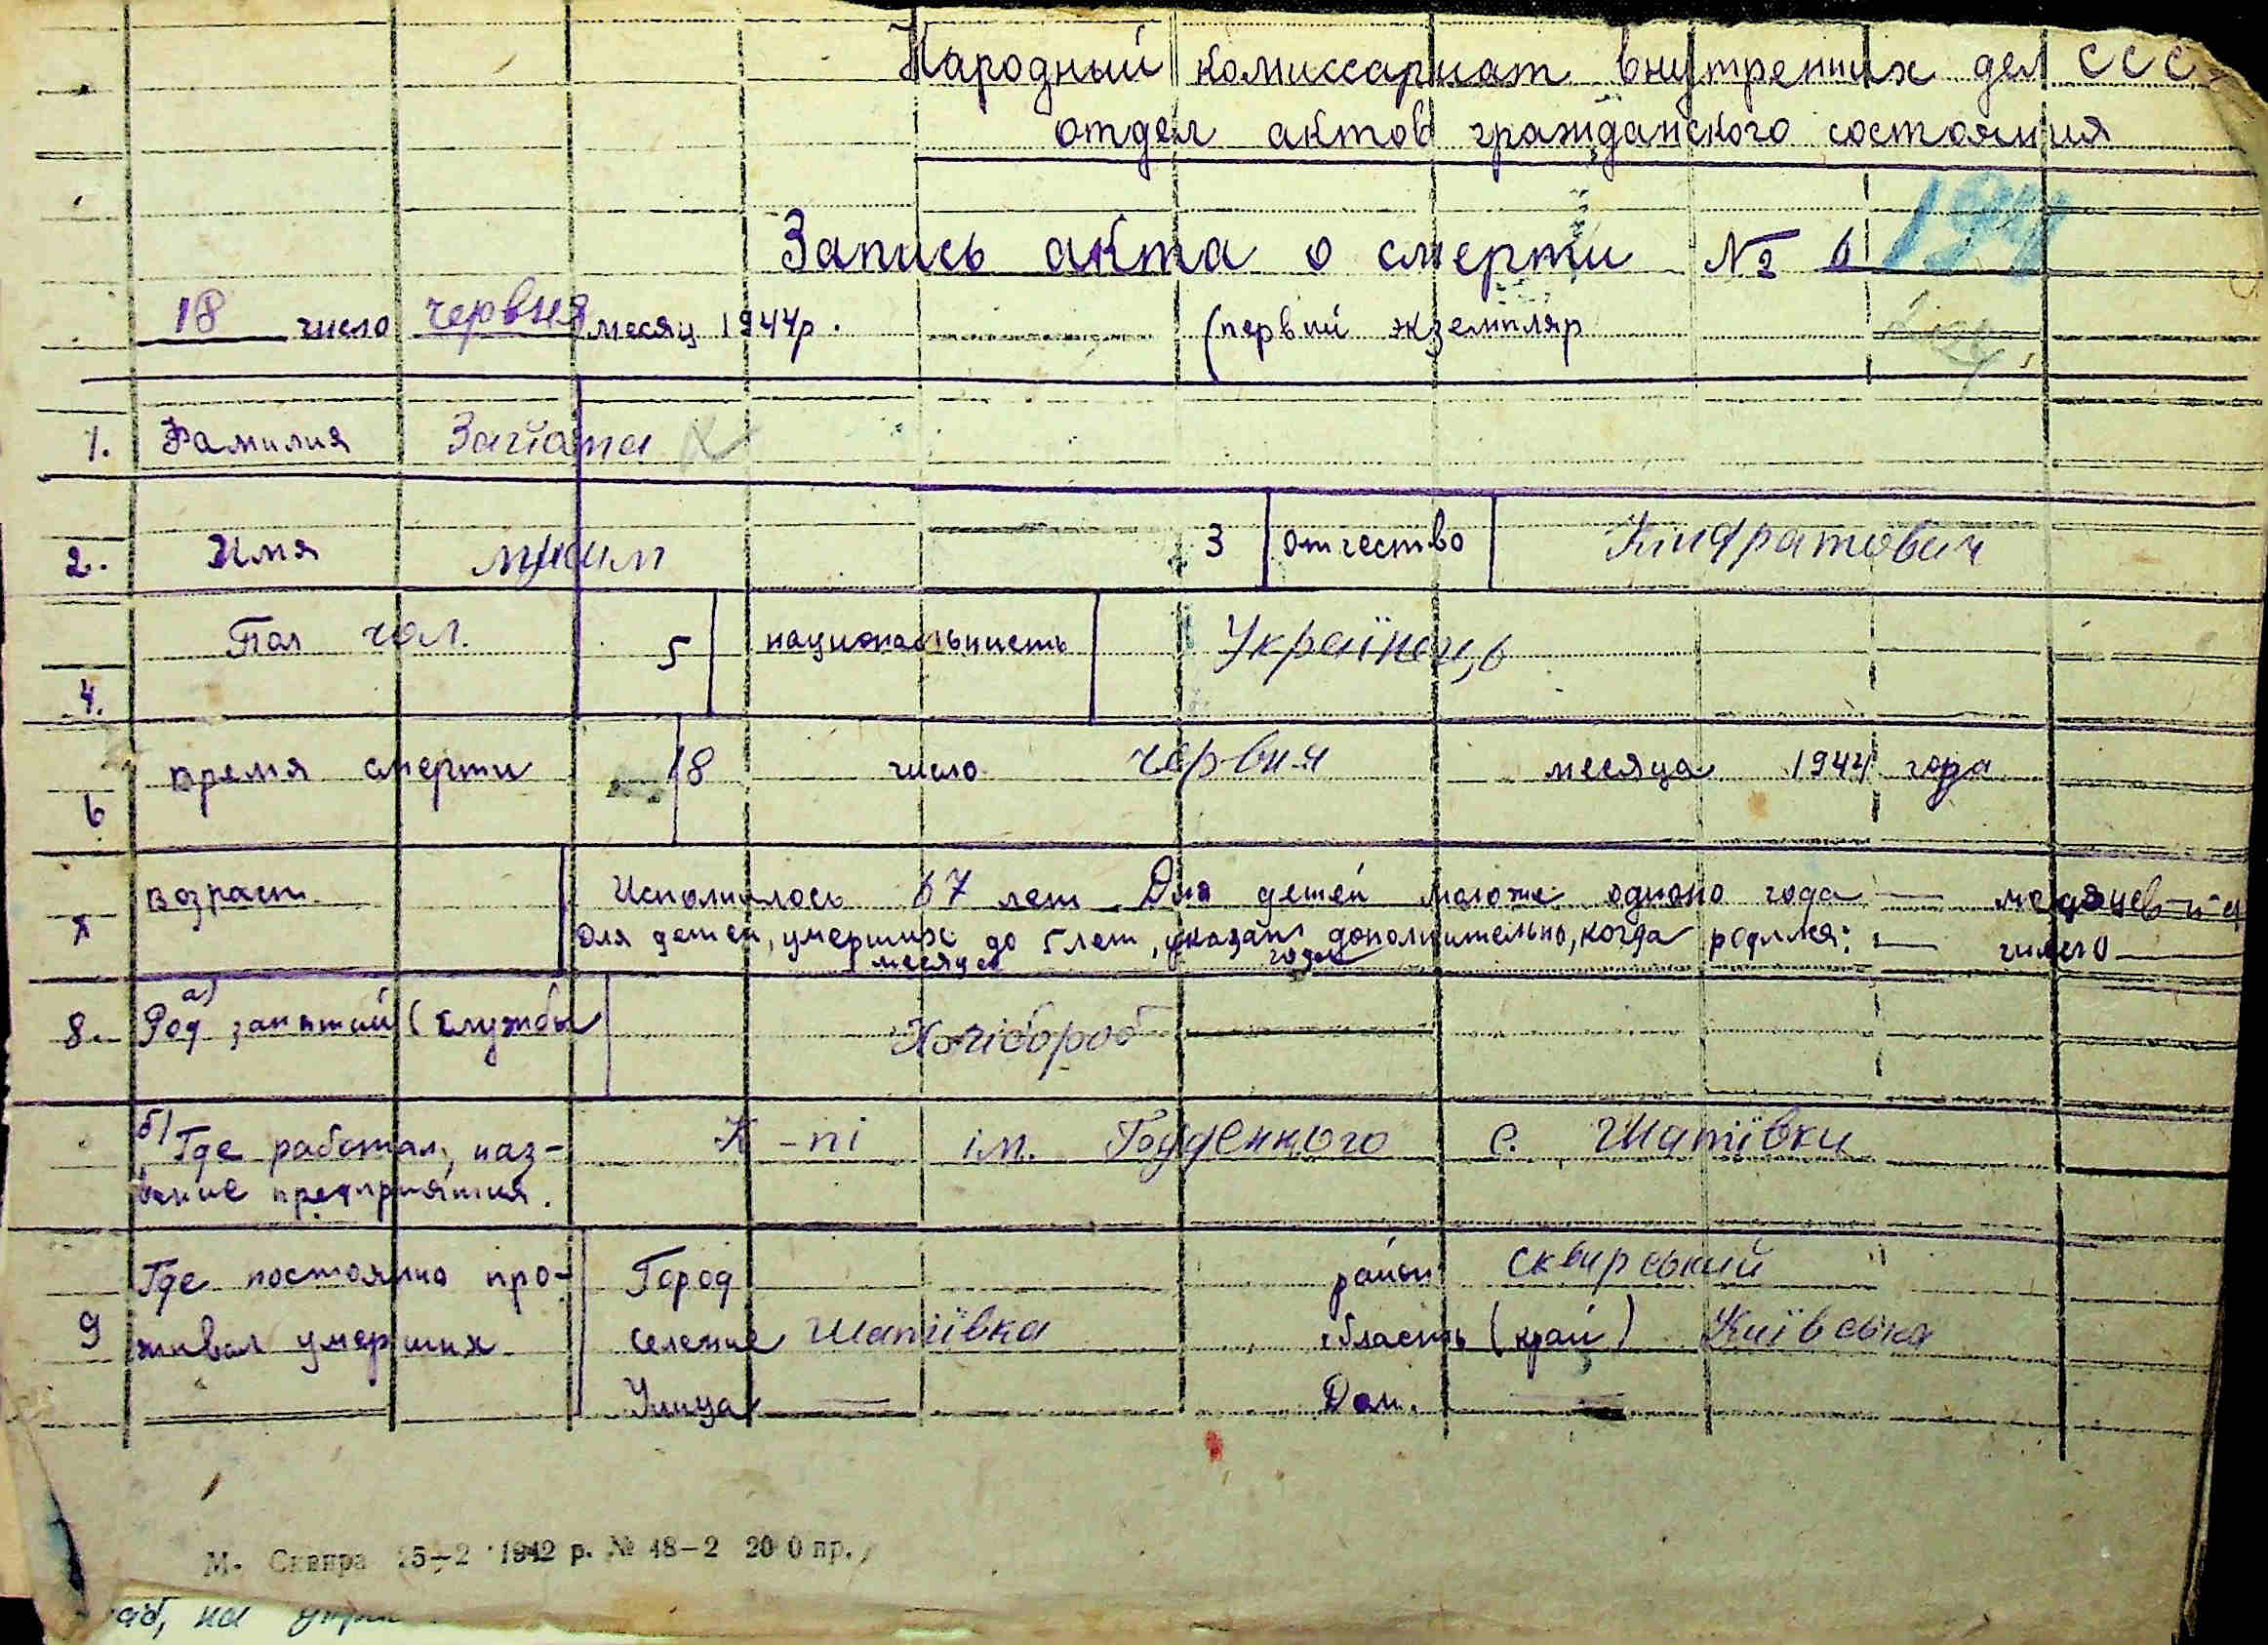 Народный комиссариат внутренних дел ССС
отдел актов гражданского состояния
Запись акта о смерти № 6
18 число червня месяц 1944р.
(первий экземпляр
1. Фамилия
2. Имя 3 отчество Киндратович
4. Пол чол. 5 национальність Українець
6 время смерти 18 число червня месяца 1944 года
7 возраст Исполнилось 67 лет Для детей моложе одного года —
Для детей, умерших до 5 лет, указать дополнительно, когда родился: — число —
месяца года
8. а) Род занятий (службы Хлібороб
б) Где работал, наз-
вание предприятия.
К-пі ім. с. Шапіївки
9 Где постоянно про-
живал умерших
Город район сквирський
селение Шапіївка область (край) Київська
Улица — Дом. —
М. Сквира 15—2 1942 р. № 48—2 200 пр.